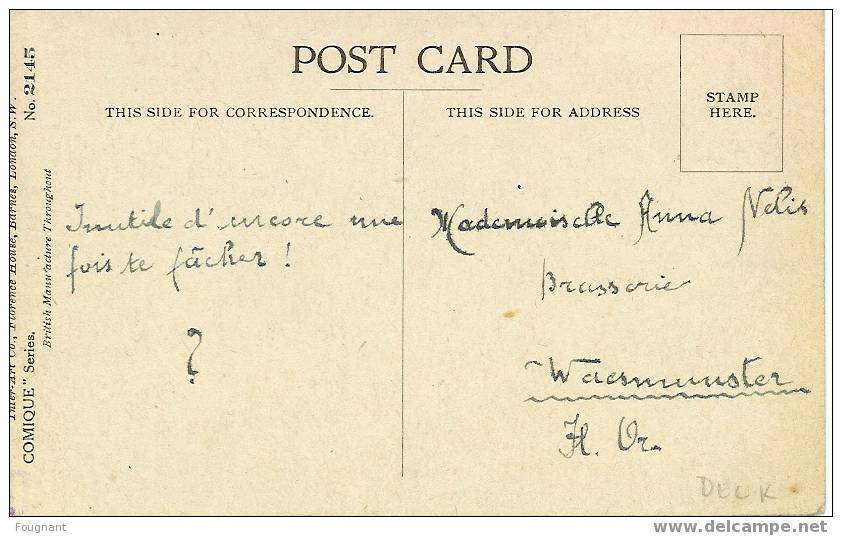 POST CARD
THIS SIDE FOR CORRESPONDENCE.
THIS SIDE FOR ADDRESS
STAMP
HERE.
Inutile d'encore une
fois te fâcher !
?
Mademoiselle Anna Nelis
Brasserie
Waesmunster
Fl. Or.
DECK
COMIQUE" Series.
No. 2145
Inter-Art Co., Florence House, Barnes, London, S.W.
British Manufacture Throughout
Fougnant
www.delcampe.net